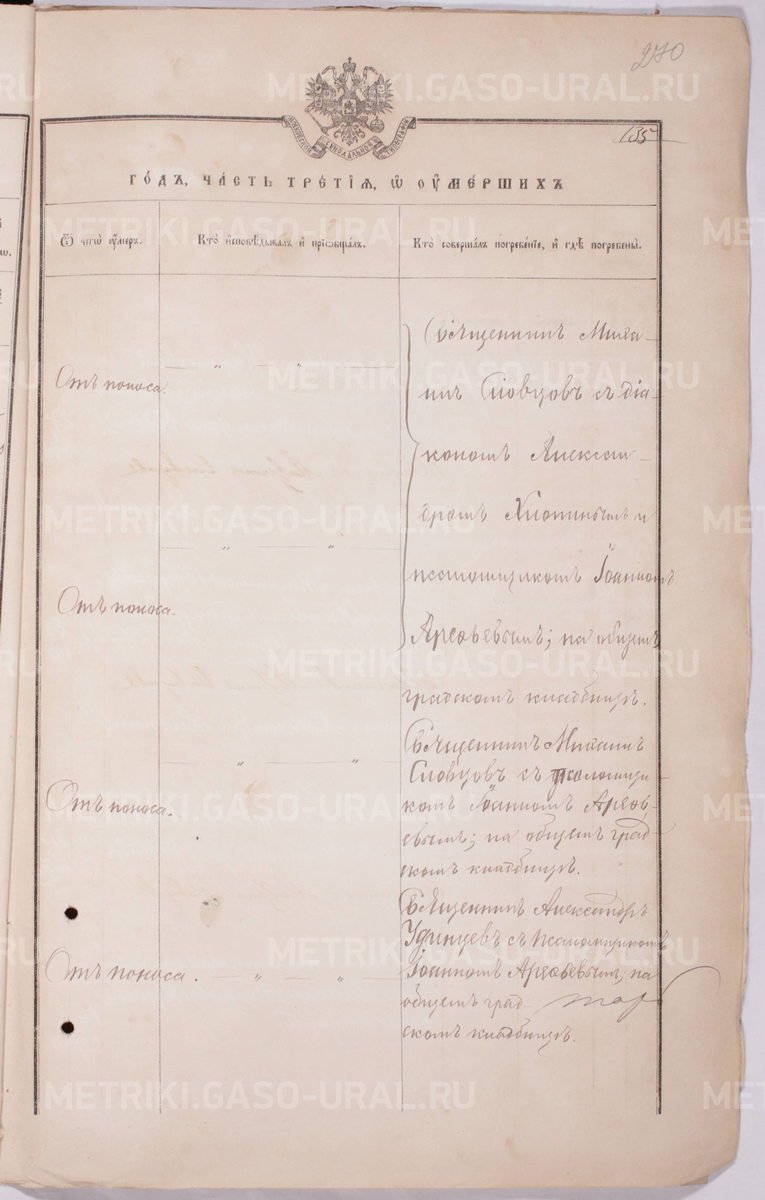 270
135
МОСКОВСКОЙ СѴНОДАЛЬНОЙ ТИПОГРАФІИ
ГО́ДЪ, ЧА́СТЬ ТРЕ́ТІѦ, Ѽ ОУМЕ́РШИХЪ
Ѿ чегѡ̀ ᲂу҆́меръ.
Кто̀ и҆сповѣ́дывалъ и҆ прїѡбща́лъ.
Кто̀ соверша́лъ погребе́нїе, и҆ гдѣ̀ погребены̀.
Отъ поноса.
Священникъ Миха-
илъ Словцовъ съ діа-
кономъ Алексан-
дромъ Хлопинымъ и
псаломщикомъ Іоанномъ
Отъ поноса.
Арефьевымъ; на общемъ
градскомъ кладбищѣ.
Отъ поноса.
Священникъ Михаилъ
Словцовъ съ псаломщи-
комъ Іоанномъ Арефь-
евымъ; на общемъ град-
скомъ кладбищѣ.
Отъ поноса.
Священникъ Александръ
Удинцевъ съ псаломщикомъ
Іоанномъ Арефьевымъ; на
общемъ град-
скомъ кладбищѣ.
METRIKI.GASO-URAL.RU